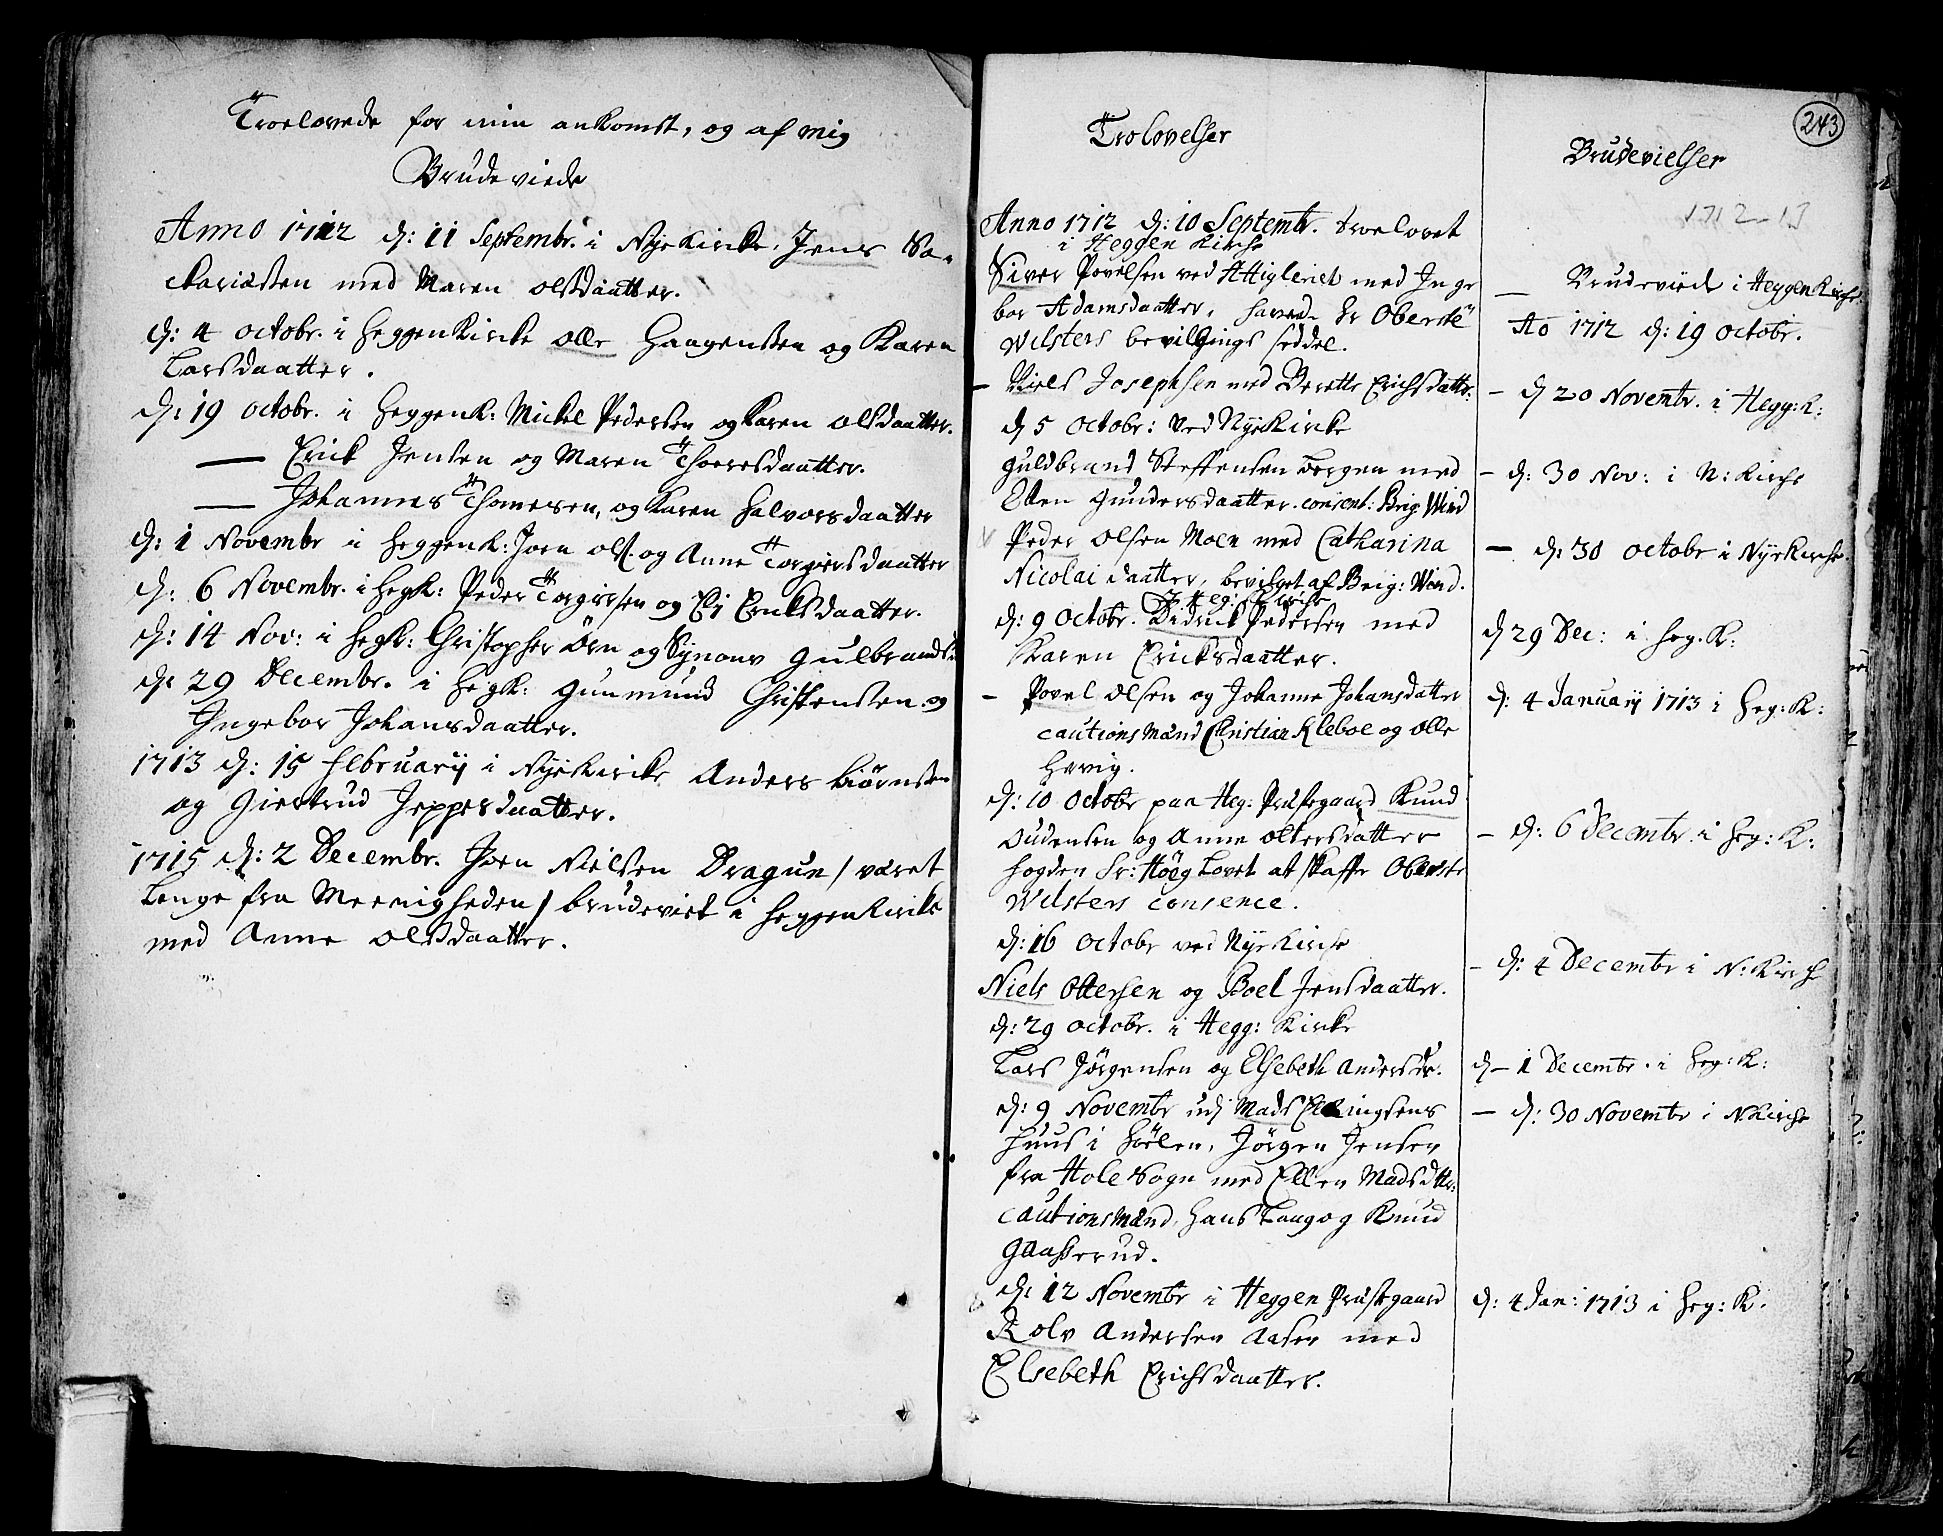 Troelovede for min ankomst, og af mig
Brudeviede
Anno 1712 d: 11 Septembr. i Nyekircke, Jens Sa-
ckariæsen med Maren Olsdaatter.
d: 4 octobr. i Heggenkircke Olle Haagensen og Karen
Larsdaatter.
d: 19 octobr. i Heggenk: Mickel Pedersen og Karen Olsdaatter.
— Erick Jensen og Maren Thoresdaatter.
— Johannes Thomesen, og Karen Halvorsdaatter
d: 1 Novembr i Heggenk: Joen Ols. og Anne Torgiersdaatter
d: 6 Novembr. i Hegk: Peder Torgiersen og Eli Ericksdaatter.
d: 14 Nov: i Hegk: Christopher Örn og Synove Gulbrandsd
d: 29 Decembr. i Hegk: Gunmund Christensen og
Ingebor Johansdaatter.
1713 d: 15 Februarij i Nyekircke Anders Biörnsen
og Giertrud Jeppesdaatter.
1715 d: 2 Decembr. Joen Nielsen Dragun / været
lenge fra Meenigheden / brudeviet i Heggenkircke
med Anne Olsdaatter.
243
Trolovelser
Anno 1712 d: 10 Septembr. troelovet
i Heggen Kirche
Siver Povelsen ved Attigleriet med Inge
bor Adamsdaatter, havde Hr Oberste
Wilsters bevilgings seddel.
— Niels Josephsen med Berette Erichsdatter.
d 5 Octobr: ved Nyekircke
Guldbrand Steffensen Bergen med
Ellen Gundersdaatter. consent: Brig: Wind
Peder Olsen Moen med Catharina
Nicolai daatter, bevilget af Brig: Wind.
i Heg: Kirche
d: 9 Octobr. Didrick Pedersen med
Karen Ericksdaatter.
— Povel Olsen og Johanne Johansdatter
cautions Mænd Christian Kleboe og Olle
Hervig.
d: 10 Octobr paa Heg: Prestegaard Knud
Oudensen og Anne Oltersdatter
Hr: Höeg lovet at skaffe Oberste
Wilsters consence.
d: 16 Octobr ved Nyekirche
Niels Ottersen og Boel Jensdaatter.
d: 29 octobr. i Hegg: Kircke
Lars Jörgensen og Elsebeth Andersdr.
d: 9 Novembr udj Mads Ellingsens
Huus i Hoelen, Jörgen Jensen
fra Hole Sogn med Ellen Madsdtr:
cautionsMænd, Hans Lang og Knud
Gaaserud.
d: 12 Novembr i Heggen Prestgaard
Rolv Andersen Aaser med
Elsebeth Erichsdaatter.
Brudevielser
1712-13
— Brudeviede i Heggen Kirche
Ao 1712 d: 19 octobr.
— d 20 Novembr. i Hegg:K:
— d: 30 Nov: i N: Kirche
— d: 30 octobr i Nyekirche.
d 29 Dec: i Heg:K:
d: 4 Januarij 1713 i Heg:K:
— d: 6 Decembr. i Heg:K:
— d: 4 Decembr i N:Kirch
d— 1 Decembr. i Heg:K:
— d: 30 Novembr i NKirche
d: 4 Jan: 1713 i Heg:K.